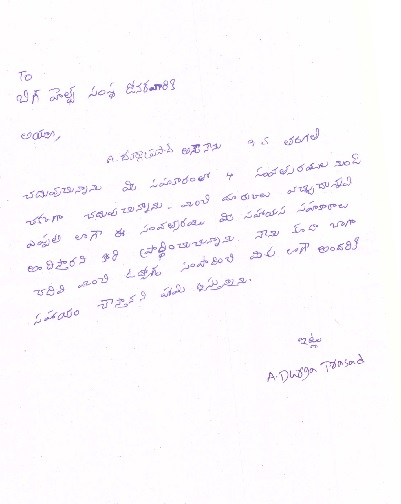 To
బిగ్ హెల్ప్ సంస్థ
అయ్యా,
A. దుర్గాప్రసాద్ అనే నేను 9 వ తరగతి
చదువుచున్నాను మీ సహకారంతో 4 సంవత్సరముల నుంచి
చదువుచున్నాను. మంచి మార్కులు వచ్చుచున్నవి
ఎప్పటి లాగా ఈ సంవత్సరము మీ సహాయ సహకారాలు
అందిస్తారని ప్రార్థించుచున్నాను. నేను కూడా బాగా
చదివి మంచి ఉద్యోగం సంపాదించి మీకు లాగా అందరికి
సహాయం చేస్తానని హామీ ఇస్తున్నాను.
ఇట్లు
A. Durga Prasad